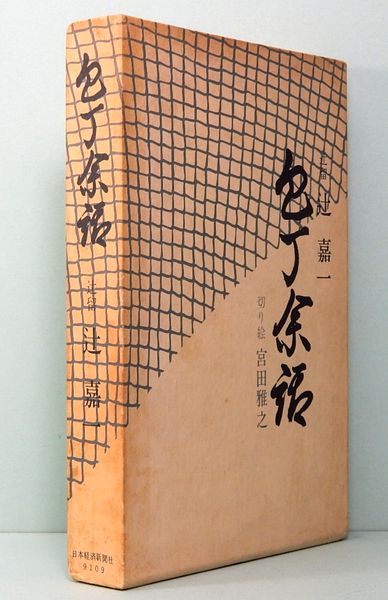 包丁余話
辻留
辻嘉一
日本経済新聞社
9109
辻留 辻嘉一
包丁余話
切り絵 宮田雅之